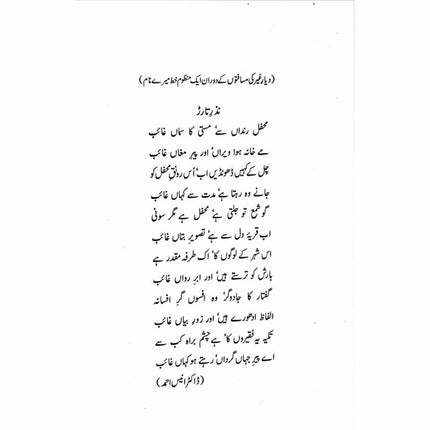 (دیارِ غیر کی مسافتوں کے دوران ایک منظوم خط میرے نام)
نذرِ تارڑ
محفل رنداں سے، مستی کا سماں غائب
مے خانہ ہوا ویراں، اور پیرِ مغاں غائب
چل کے کہیں ڈھونڈیں اب، اُس رونقِ محفل کو
جانے وہ رہتا ہے، مدت سے کہاں غائب
گو شمع تو جلتی ہے، محفل ہے مگر سونی
اب قریۂ دل سے ہے، تصویرِ بتاں غائب
اس شہر کے لوگوں کا، اک طرفہ مقدر ہے
بارش کو ترستے ہیں، اور ابرِ رواں غائب
گفتار کا جادوگر، وہ افسوں گرِ افسانہ
الفاظ ادھورے ہیں، اور زورِ بیاں غائب
تکیہ یہ فقیروں کا، ہے چشم براہ کب سے
اے پیرِ جہاں گرداں، رہتے ہو کہاں غائب
(ڈاکٹر انیس احمد)